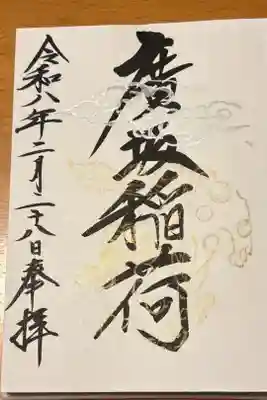 廣坂稲荷
令和八年二月二十八日奉拝